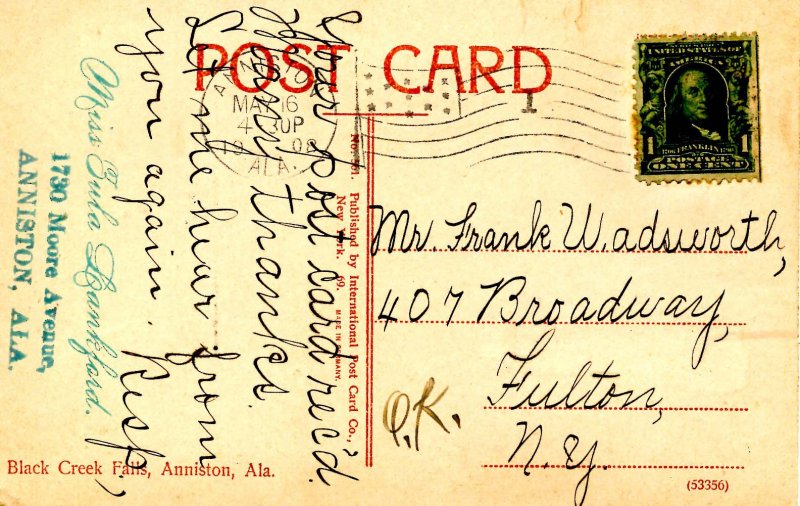 POST CARD
ANNISTON
MAR 16
4 30P
1908
ALA.
1
UNITED STATES OF
AMERICA
1 1
1706 FRANKLIN 1790
POSTAGE
ONE CENT
Your post card rec'd.
thanks.
Let me hear from
you again. Resp.,
Miss Tula Lankford.
1730 Moore Avenue,
ANNISTON, ALA.
Published by International Post Card Co.,
New York. 69. MADE IN GERMANY.
Mr. Frank Wadsworth,
407 Broadway,
Fulton,
N.Y.
O.K.
Black Creek Falls, Anniston, Ala.
(53356)